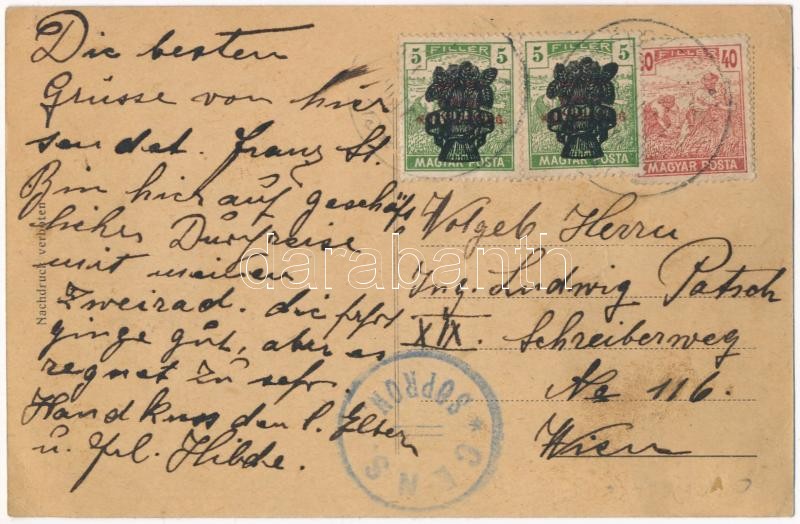 Die besten
Grüsse von hier
sendet. Franz St.
Bin hier auf geschäft
licher Durchreise
mit meinen
Zweirad. die
ginge gut, aber es
regnet zu sehr.
Handkuss den l. Eltern
u. Frl. Hilde.
Nachdruck verboten
5 FILLER 5
MAGYAR POSTA
5 FILLER 5
MAGYAR POSTA
FILLER 40
MAGYAR POSTA
Herrn
Ing. Ludwig Patsch
XIX. Schreiberweg
No 116.
Wien
SOPRON
* CENS.
darabanth